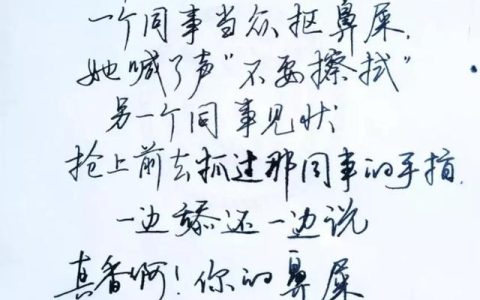 一个同事当众抠鼻屎.
她喊了声"不要擦拭"
另一个同事见状
抢上前去抓过那同事的手指.
一边舔还一边说
真香啊!你的鼻屎